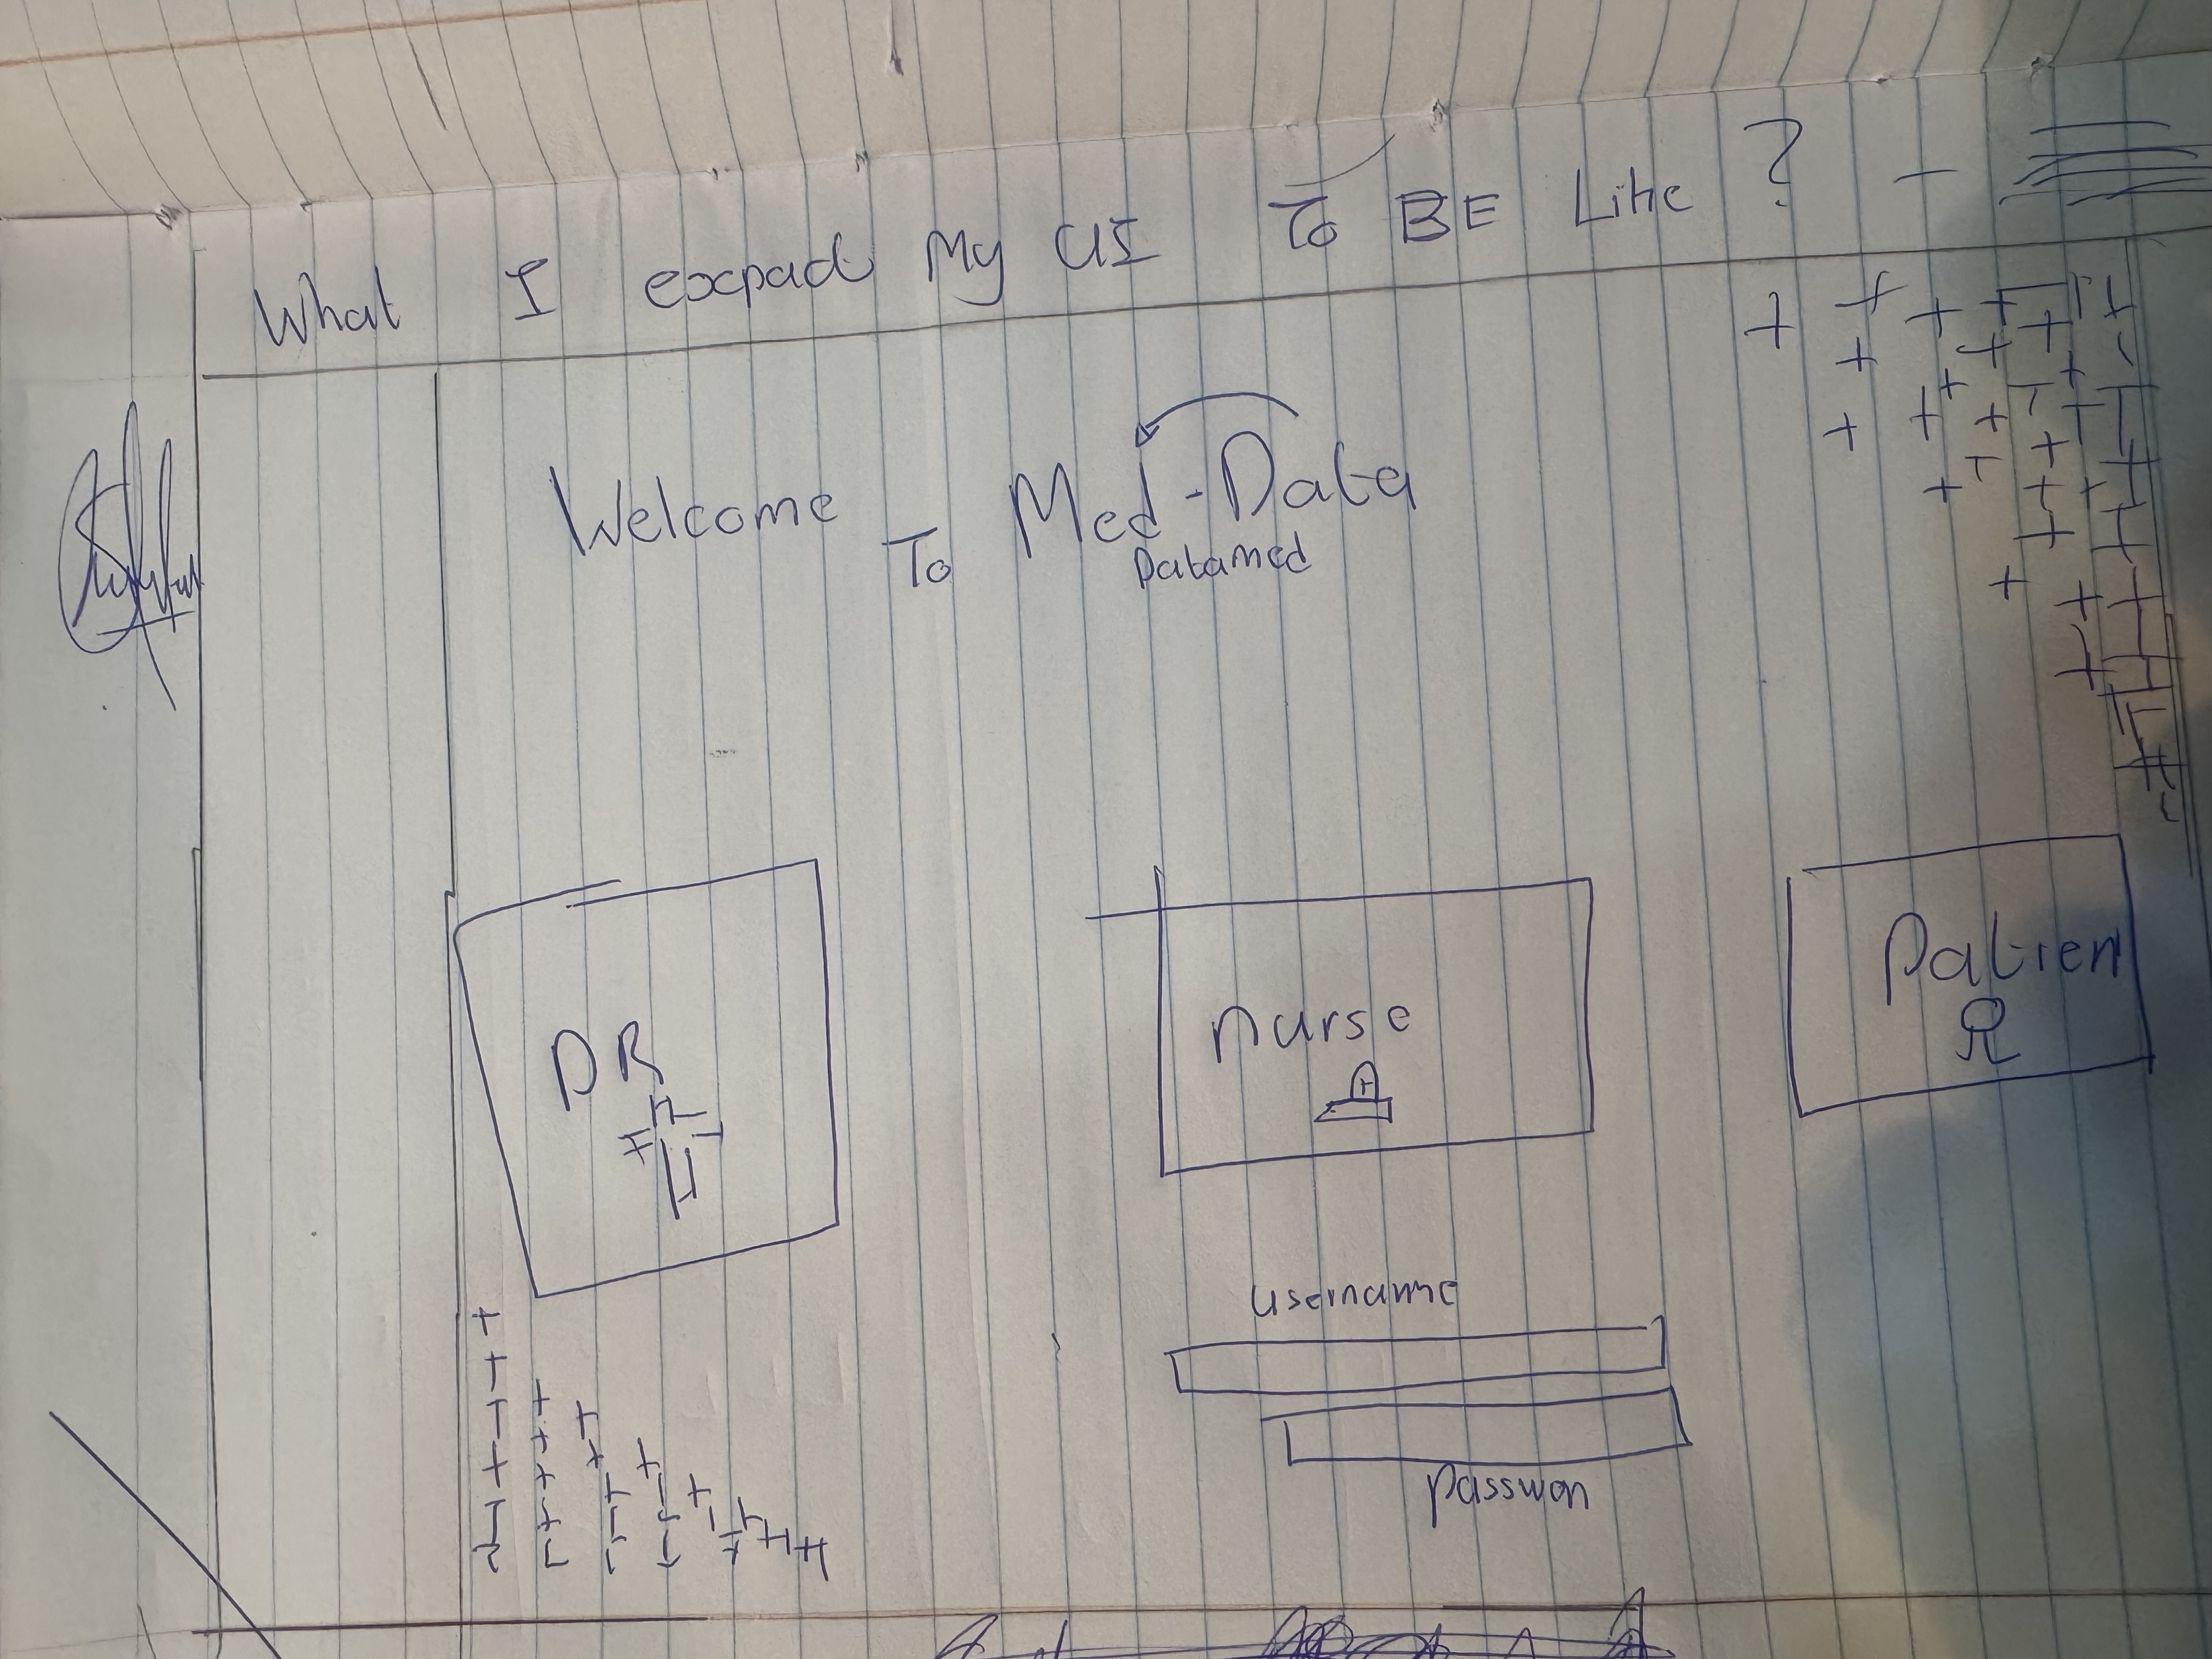 What I expad My UI To BE Like ? -
Welcome To Med-Data
Datamed
DR Nurse Patien
username
Passwon